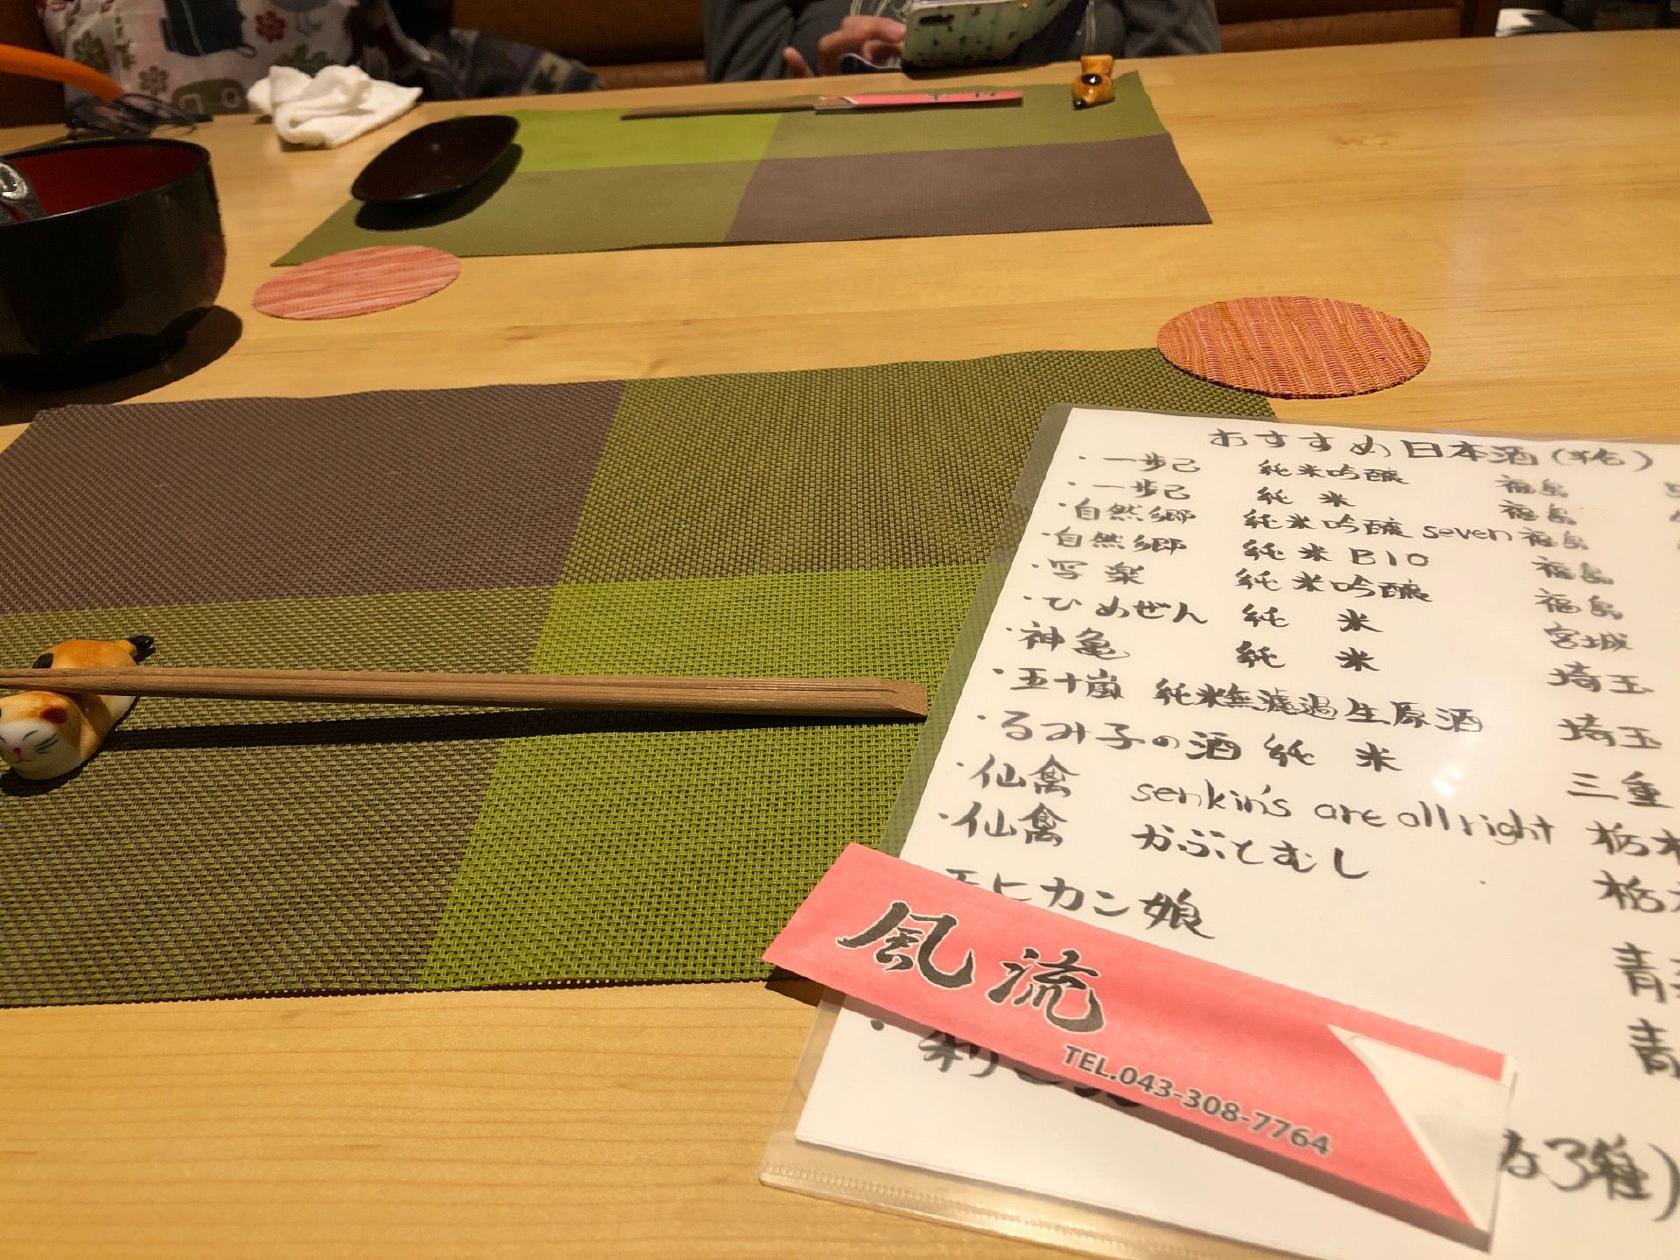 おすすめ日本酒
・一歩己 純米吟醸 福島
・一歩己 純米 福島
・自然郷 純米吟醸 seven 福島
・自然郷 純米 BIO 福島
・写楽 純米吟醸 福島
・ひめぜん 純米 宮城
・神亀 純米 埼玉
・五十嵐 純米無濾過生原酒 埼玉
・るみ子の酒 純米 三重
・仙禽 senkin's are all right 栃木
・仙禽 かぶとむし 栃木
モヒカン娘
青
青
風流
TEL.043-308-7764
3種)